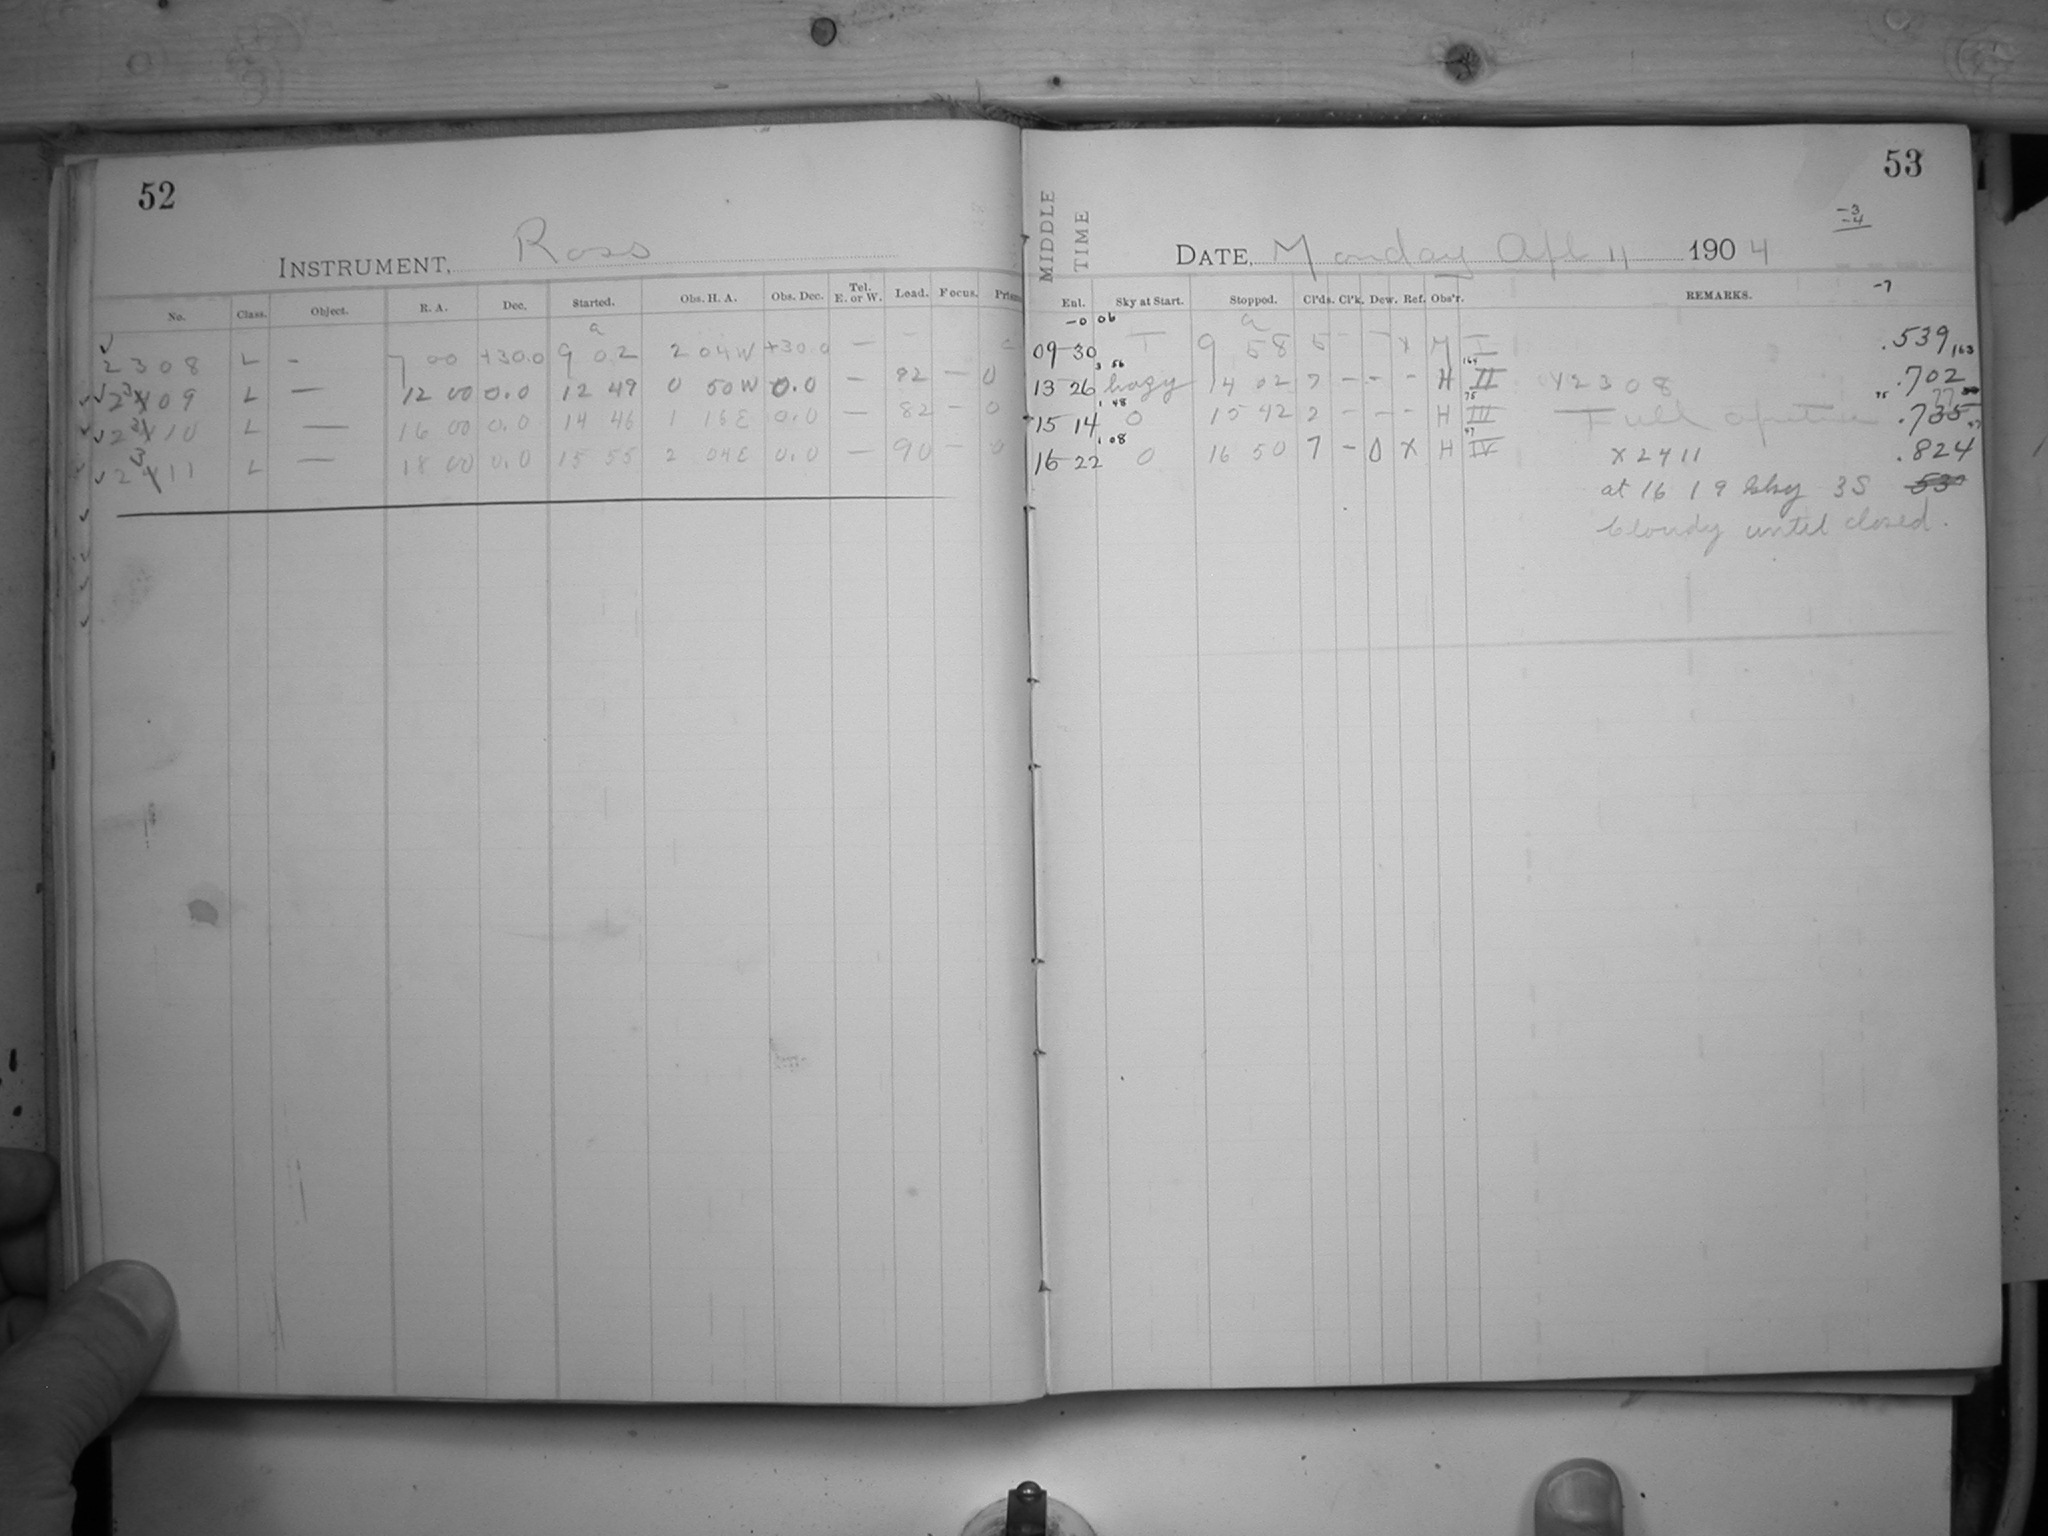 52
INSTRUMENT, Ross
No. Class. Object. R. A. Dec. Started. Obs. H. A. Obs. Dec. Tel. E. or W. Lead. Focus. Prism
a
2308 L – 7 00 +30.0 9 02 2 04 W +30.0 —
2309 L — 12 00 0.0 12 49 0 50 W 0.0 — 92 — 0
2310 L — 16 00 0.0 14 46 1 16 E 0.0 — 82 – 0
2311 L — 18 00 0.0 15 55 2 04 E 0.0 — 90 – 0
53
MIDDLE TIME
-3
-4
DATE, Monday Apl 11 1904
-7
Enl. Sky at Start. Stopped. Cl'ds. Cl'k. Dew. Ref. Obs'r. REMARKS.
-0 06 a
09 30 T 9 58 5 – – x M I .539 163
3 56 164
13 26 hazy 14 02 7 – – – H II x2308 .702
1 48 75 75 77
15 14 0 15 42 2 – – – H III Full aperture .735
1 08 47
16 22 0 16 50 7 – 0 x H IV x2411 .824
at 16 19 sky 3S 53
Cloudy until closed.